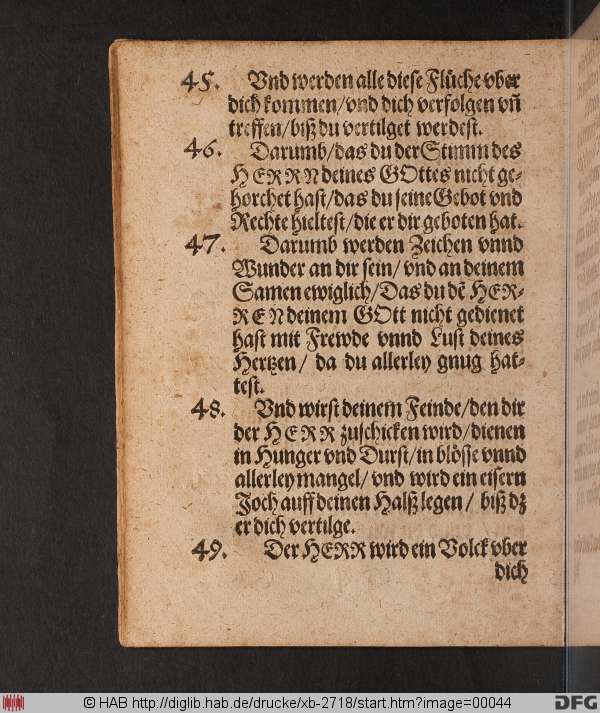 45. Vnd werden alle diese Flüche vber
dich kommen/vnd dich verfolgen vñ
treffen/biß du vertilget werdest.
46. Darumb/das du der Stimm des
HERRN deines GOttes nicht ge-
horchet hast/das du seine Gebot vnd
Rechte hieltest/die er dir geboten hat.
47. Darumb werden Zeichen vnnd
Wunder an dir sein/ vnd an deinem
Samen ewiglich/Das du dẽ HER-
REN deinem GOtt nicht gedienet
hast mit Frewde vnnd Lust deines
Hertzen/ da du allerley gnug hat-
test.
48. Vnd wirst deinem Feinde/den dir
der HERR zuschicken wird/dienen
in Hunger vnd Durst/in blösse vnnd
allerley mangel/ vnd wird ein eisern
Joch auff deinen Halß legen/ biß dz
er dich vertilge.
49. Der HERR wird ein Volck vber
dich
© HAB http://diglib.hab.de/drucke/xb-2718/start.htm?image=00044
DFG